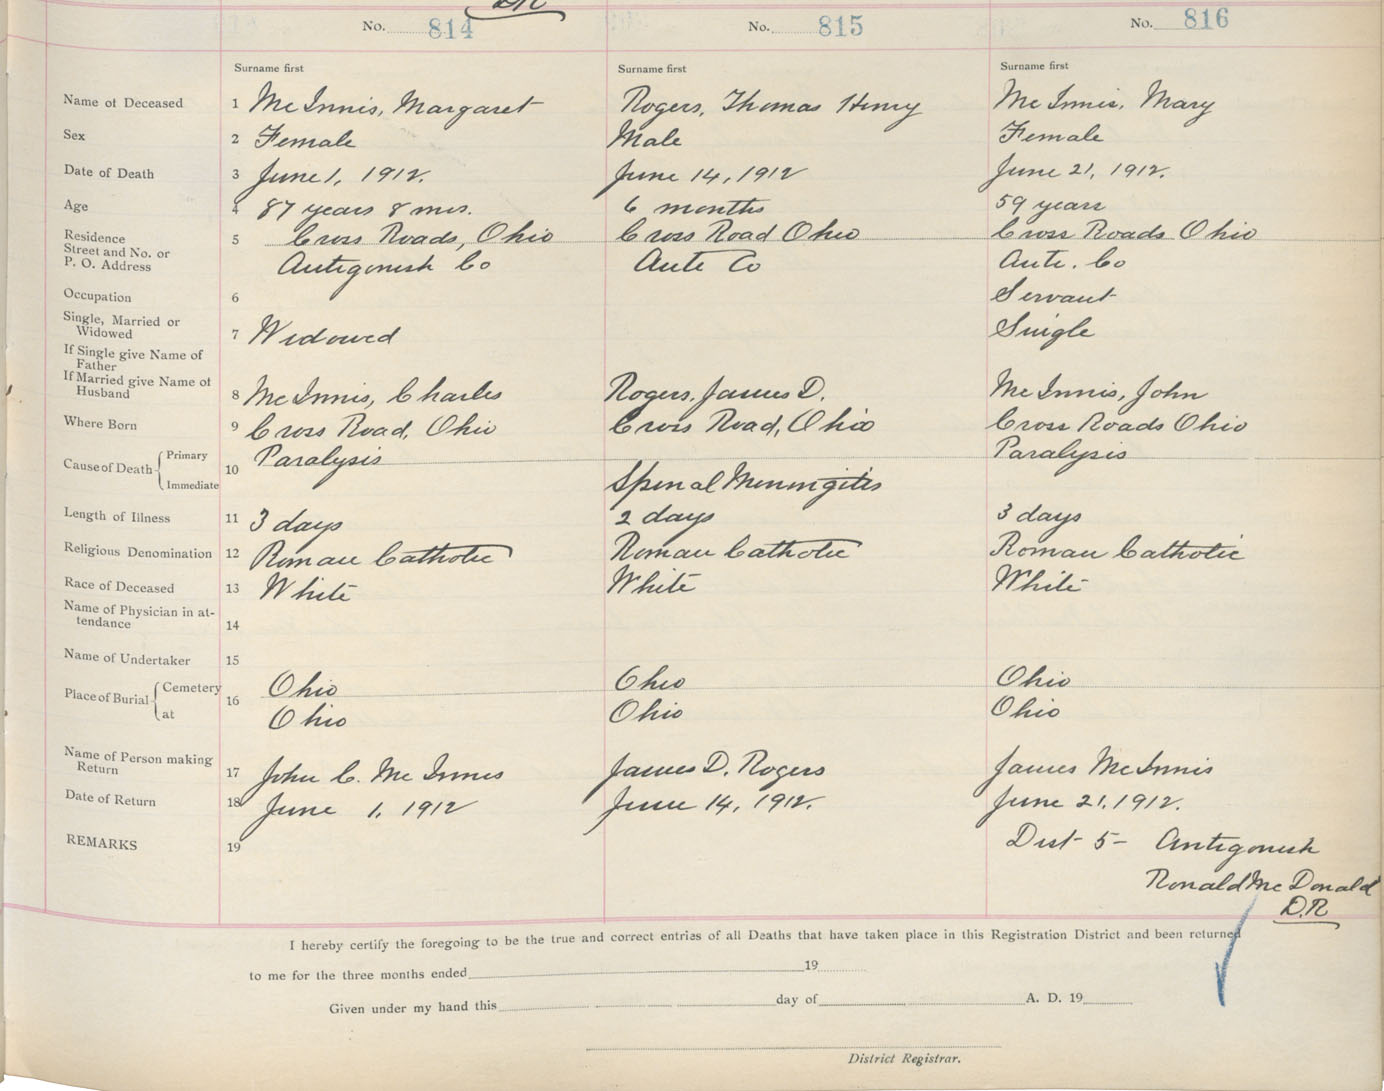 D.R
No. 814 No. 815 No. 816
Surname first Surname first Surname first
Name of Deceased 1 Mc Innis, Margaret Rogers, Thomas Henry Mc Innis, Mary
Sex 2 Female Male Female
Date of Death 3 June 1, 1912. June 14, 1912 June 21, 1912.
Age 4 87 years 8 mos. 6 months 59 years
Residence
Street and No. or
P. O. Address
5 Cross Roads, Ohio Cross Road Ohio Cross Roads Ohio
Antigonish Co Anti Co Anti. Co
Occupation 6 Servant
Single, Married or
Widowed 7 Widowed Single
If Single give Name of
Father
If Married give Name of
Husband 8 Mc Innis, Charles Rogers, James D. Mc Innis, John
Where Born 9 Cross Road, Ohio Cross Road, Ohio Cross Roads Ohio
Cause of Death Primary 10 Paralysis Paralysis
Immediate Spinal Meningitis
Length of Illness 11 3 days 2 days 3 days
Religious Denomination 12 Roman Catholic Roman Catholic Roman Catholic
Race of Deceased 13 White White White
Name of Physician in at-
tendance 14
Name of Undertaker 15
Place of Burial Cemetery 16 Ohio Ohio Ohio
at Ohio Ohio Ohio
Name of Person making
Return 17 John C. Mc Innis James D. Rogers James McInnis
Date of Return 18 June 1, 1912 June 14, 1912. June 21, 1912.
REMARKS 19 Dist 5- Antigonish
Ronald Mc Donald
D.R
I hereby certify the foregoing to be the true and correct entries of all Deaths that have taken place in this Registration District and been returned
to me for the three months ended 19
Given under my hand this day of A. D. 19
District Registrar.